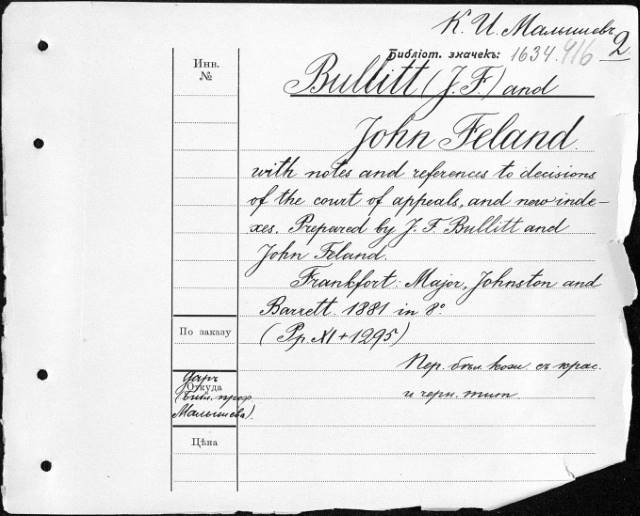 К. И. Малышевъ
Библіот. значекъ: 1634. 416 2
Инв.
№
Bullitt (J. F.) and
John Feland.
with notes and references to decisions
of the court of appeals, and new inde-
xes. Prepared by J. F. Bullitt and
John Feland.
Frankfort: Major, Johnston and
Barrett. 1881 in 8º.
По заказу
(Pp. XI + 1295)
Пер. бѣл. кожи съ крас.
и черн. тит.
Даръ
Откуда
(библ. проф.
Малышева).
Цѣна